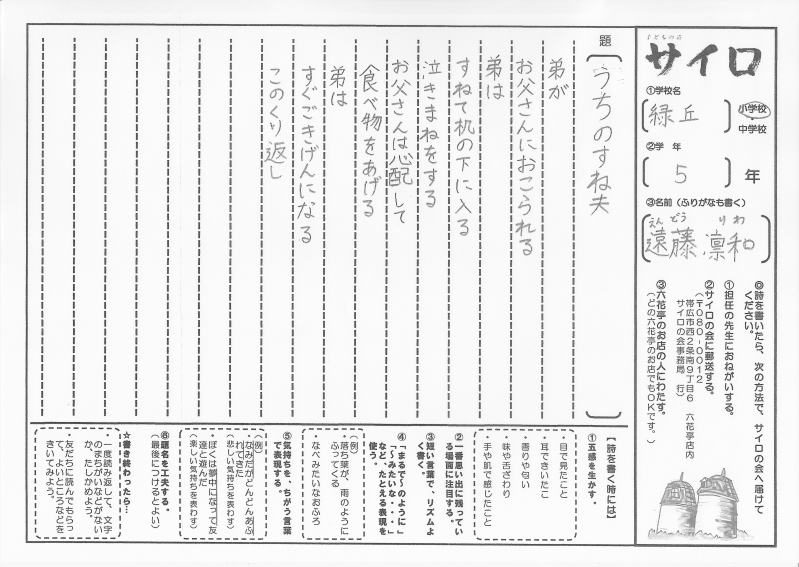 こどもの詩
サイロ
①学校名
小学校
・
中学校
緑丘
②学 年
5 年
③名前（ふりがなも書く）
えんどう りわ
遠藤 凛和
◎詩を書いたら、次の方法で、サイロの会へ届けて
ください。
①担任の先生におねがいする。
②サイロの会に郵送する。
（〒080-0012
帯広市西2条南9丁目6 六花亭店内
サイロの会事務局 行）
③六花亭のお店の人にわたす。
（どの六花亭のお店でもOKです。）
題
うちのすね夫
弟が
お父さんにおこられる
弟は
すねて机の下に入る
泣きまねをする
お父さんは心配して
食べ物をあげる
弟は
すぐごきげんになる
このくり返し
【詩を書く時には】
①五感を生かす。
・目で見たこと
・耳できいたこと
・香りや匂い
・味や舌ざわり
・手や肌で感じたこと
②一番思い出に残ってい
る場面に注目する。
③短い言葉で、リズムよ
く書く。
④「まるで〜のように」
「〜みたいな・・・」
など、たとえる表現を
使う。
（例）
・落ち葉が、雨のように
ふってくる
・なべみたいなおふろ
⑤気持ちを、ちがう言葉
で表現する。
（例）
・なみだがどんどんあふ
れてきた
（悲しい気持ちを表わす）
・ぼくは夢中になって友
達と遊んだ
（楽しい気持ちを表わす）
⑥題名を工夫する。
（最後につけるとよい）
☆書き終わったら…
・一度読み返して、文字
のまちがいなどがない
か、たしかめよう。
・友だちに読んでもらっ
て、よいところなどを
きいてみよう。